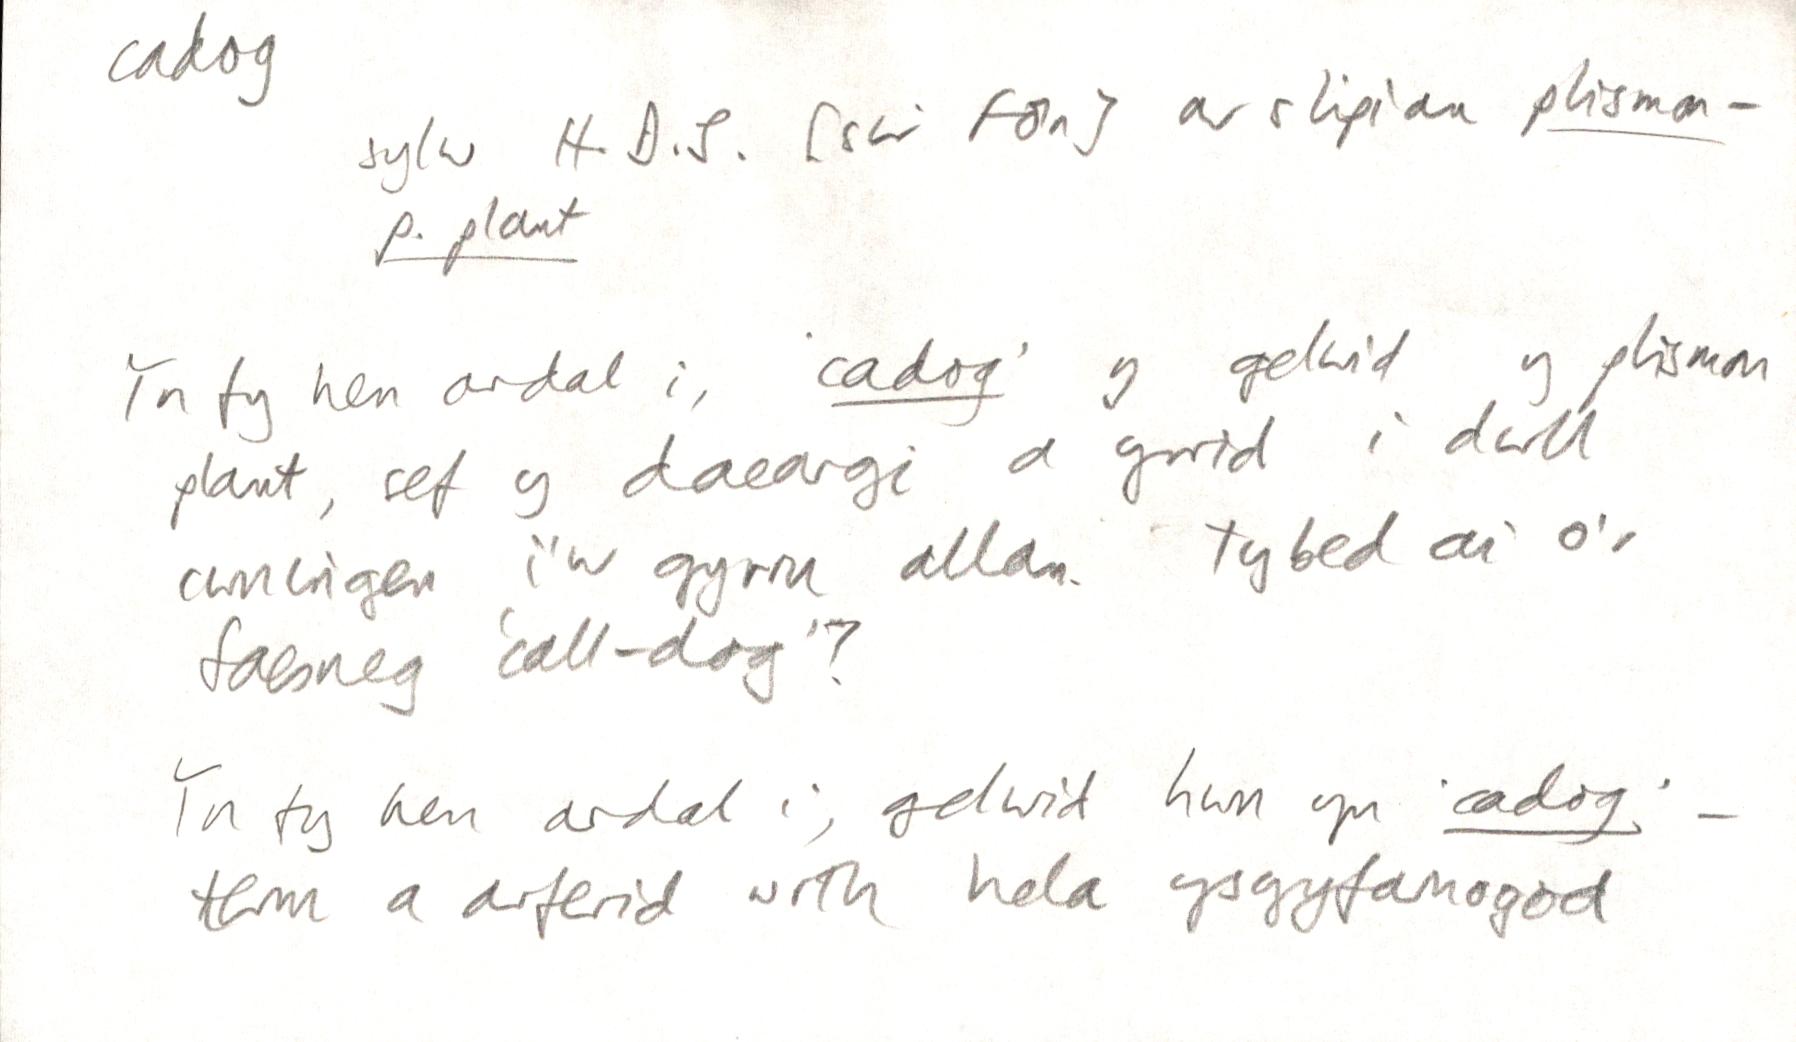 cadog
sylw H.D.S. [sir Fôn] ar slipiau plismon –
p. plant
Yn fy hen ardal i, 'cadog' y gelwid y plismon
plant, sef y daeargi a yrrid i dwll
cwningen i'w gyrru allan. Tybed ai o'r
Saesneg 'call-dog'?
Yn fy hen ardal i, gelwid hwn yn 'cadog' –
term a arferid wrth hela ysgyfarnogod